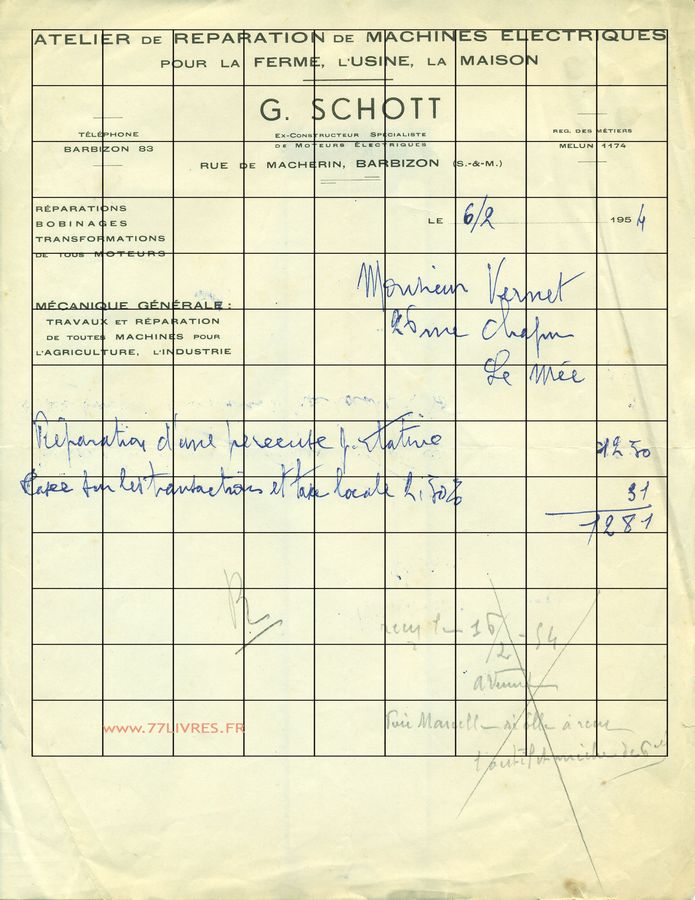 ATELIER DE REPARATION DE MACHINES ELECTRIQUES
POUR LA FERME, L'USINE, LA MAISON
G. SCHOTT
EX-CONSTRUCTEUR SPÉCIALISTE
DE MOTEURS ÉLECTRIQUES
TÉLÉPHONE
BARBIZON 83
REG. DES MÉTIERS
MELUN 1174
RUE DE MACHERIN, BARBIZON (S.-&-M.)
RÉPARATIONS
BOBINAGES
TRANSFORMATIONS
DE TOUS MOTEURS
LE 6/2 1954
MÉCANIQUE GÉNÉRALE :
TRAVAUX ET RÉPARATION
DE TOUTES MACHINES POUR
L'AGRICULTURE, L'INDUSTRIE
Monsieur Vernet
26 rue Chapu
Le Mée
Réparation d'une perceuse 1250
Taxe sur les transactions et taxe locale 2,50% 31
1281
reçu le 16/2-54
www.77LIVRES.FR